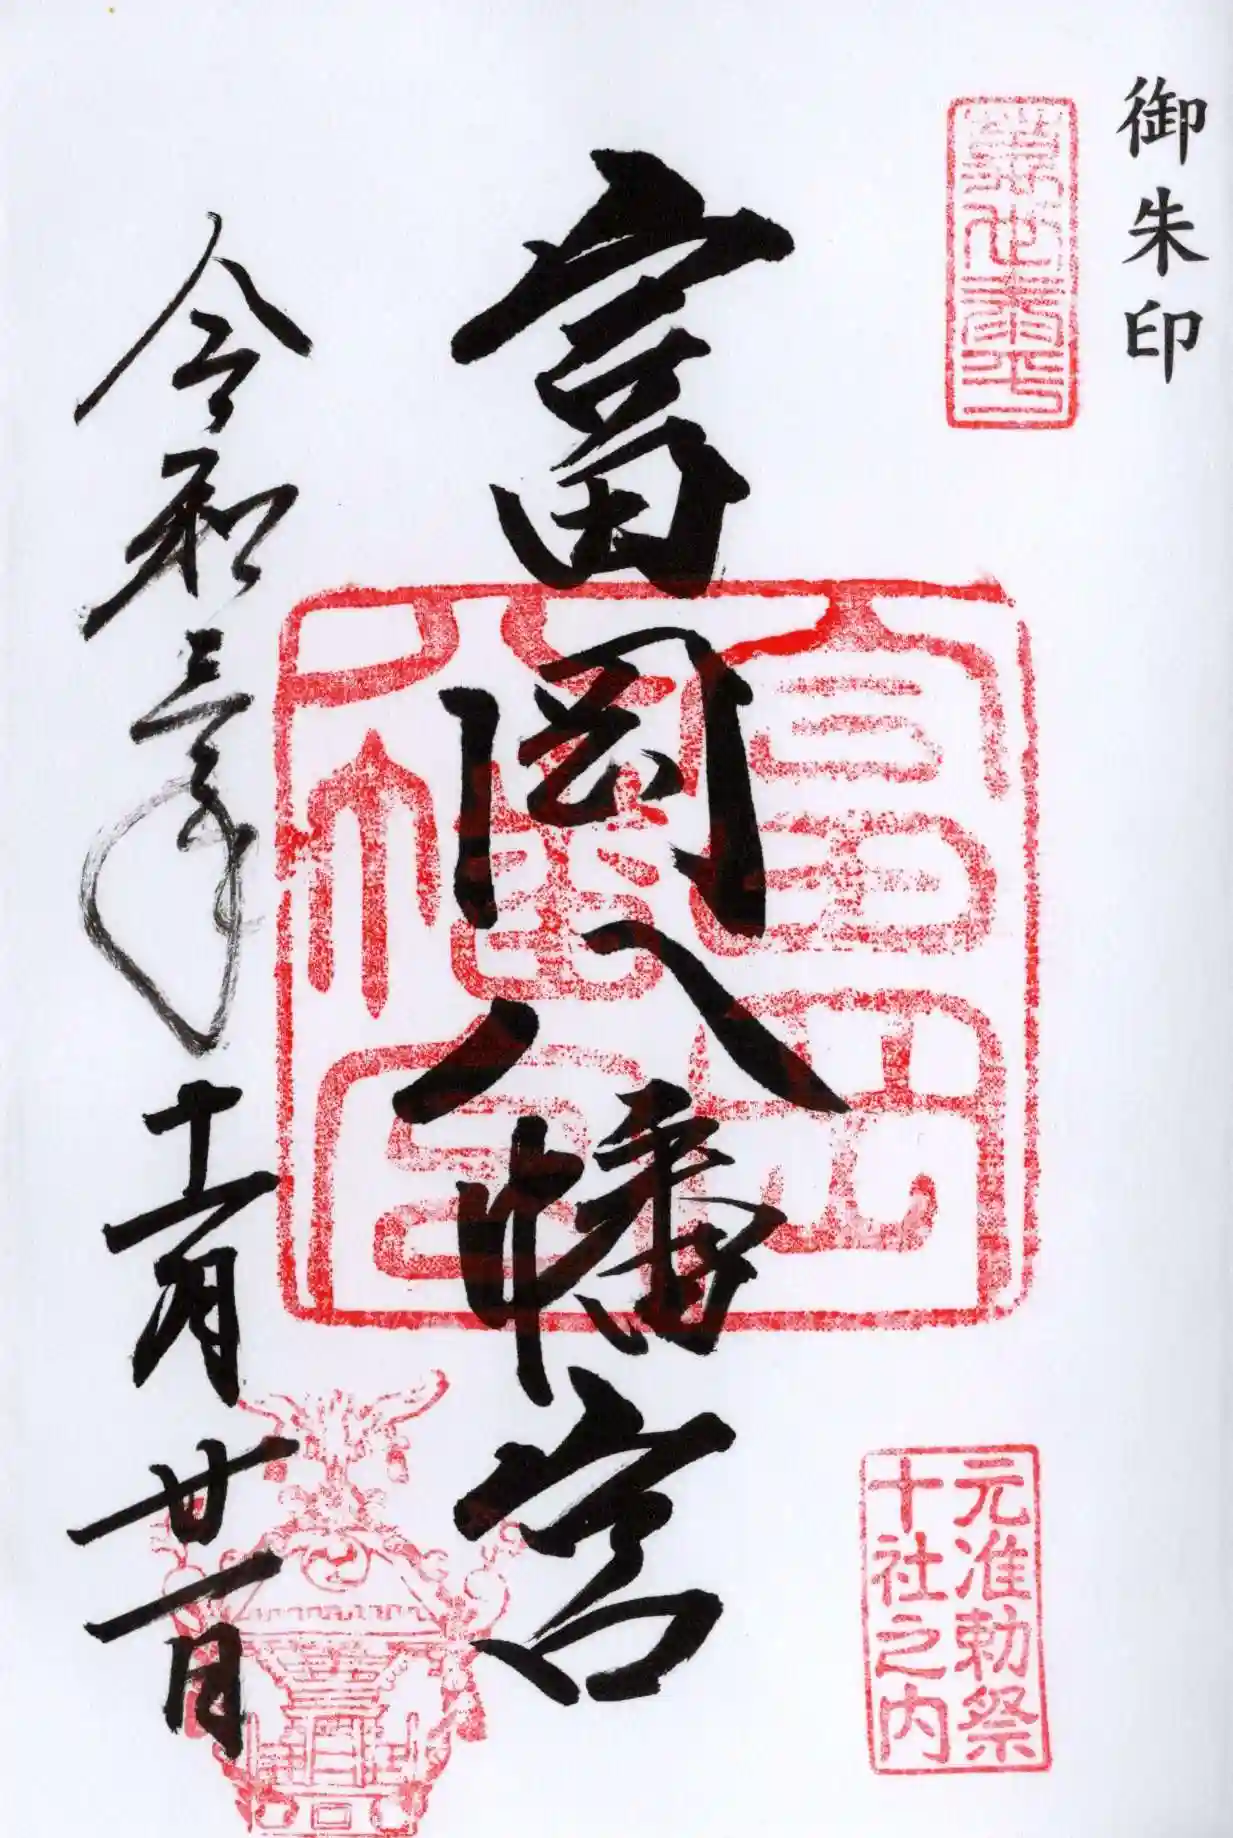 御朱印
富岡八幡宮
令和三年十一月廿一日
富岡
八幡宮
元准勅祭
十社之内